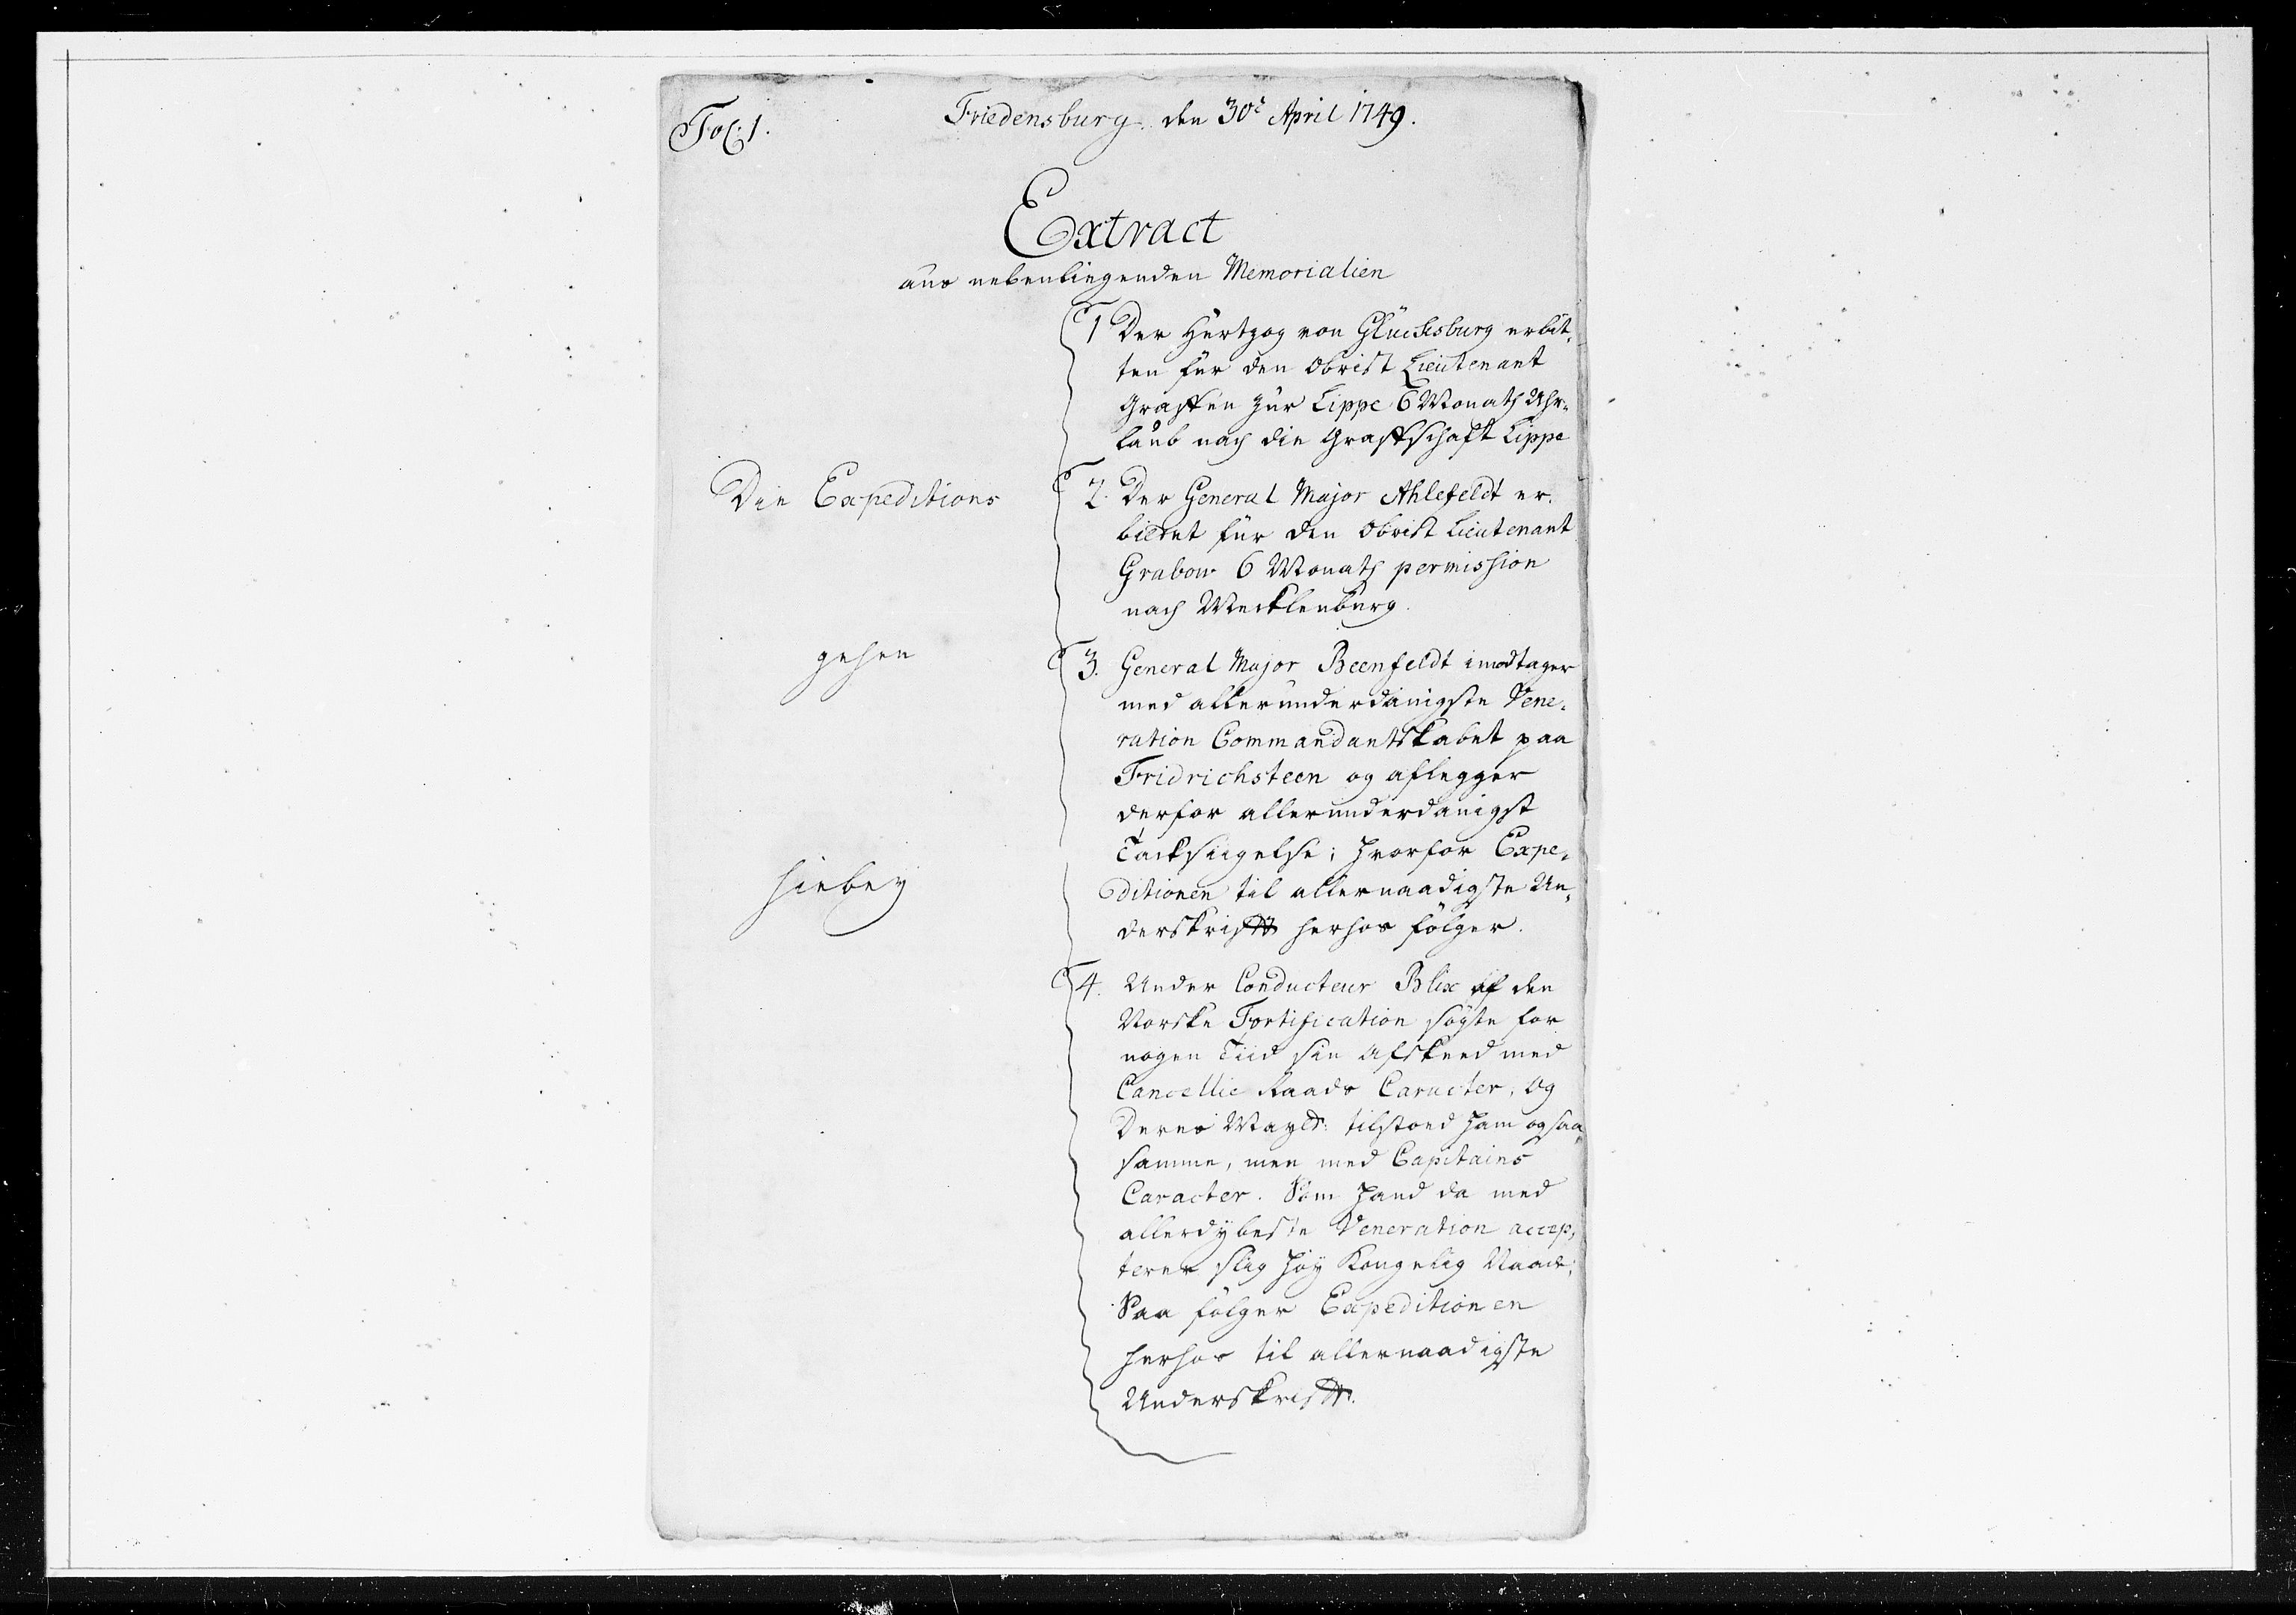 Fol: 1.
Friedensburg den 30t April 1749.
Extract
aus nebenliegenden Memorialien
1 Der Hertzog von Glücksburg erbit,
ten für den Obrist Lieutenant
Graffen zur Lippe 6 Monath Uhr,
laub nach die Graffschafft Lippe
Die Expeditions
2. Der General Major Ahlefeldt er,
bittet für den Obrist Lieutenant
Grabow 6 Monath permission
nach Mecklenburg.
gehen
3. General Major Beenfeldt imodtager
med allerunderdanigste Vene,
ration Commandantskabet paa
Fridrichsteen og aflegger
derfor allerunderdanigst
Tacksigelse; hvorfor Expe,
ditionen til allernaadigste Un,
derskrifft herhos fölger.
hiebey
4. Under Conducteur Blix af den
Norske Fortification søgte for
nogen Tiid sin Afskeed med
Cancellie Raads Caracter, og
Deres Mayts: tilstoed ham ogsaa
samme, men med Capitains
Caracter. Som hand da med
allerdybeste Veneration accep,
terer slig høy Kongelig Naade,
Saa fölger Expeditionen
herhos til allernaadigste
Underskrifft.